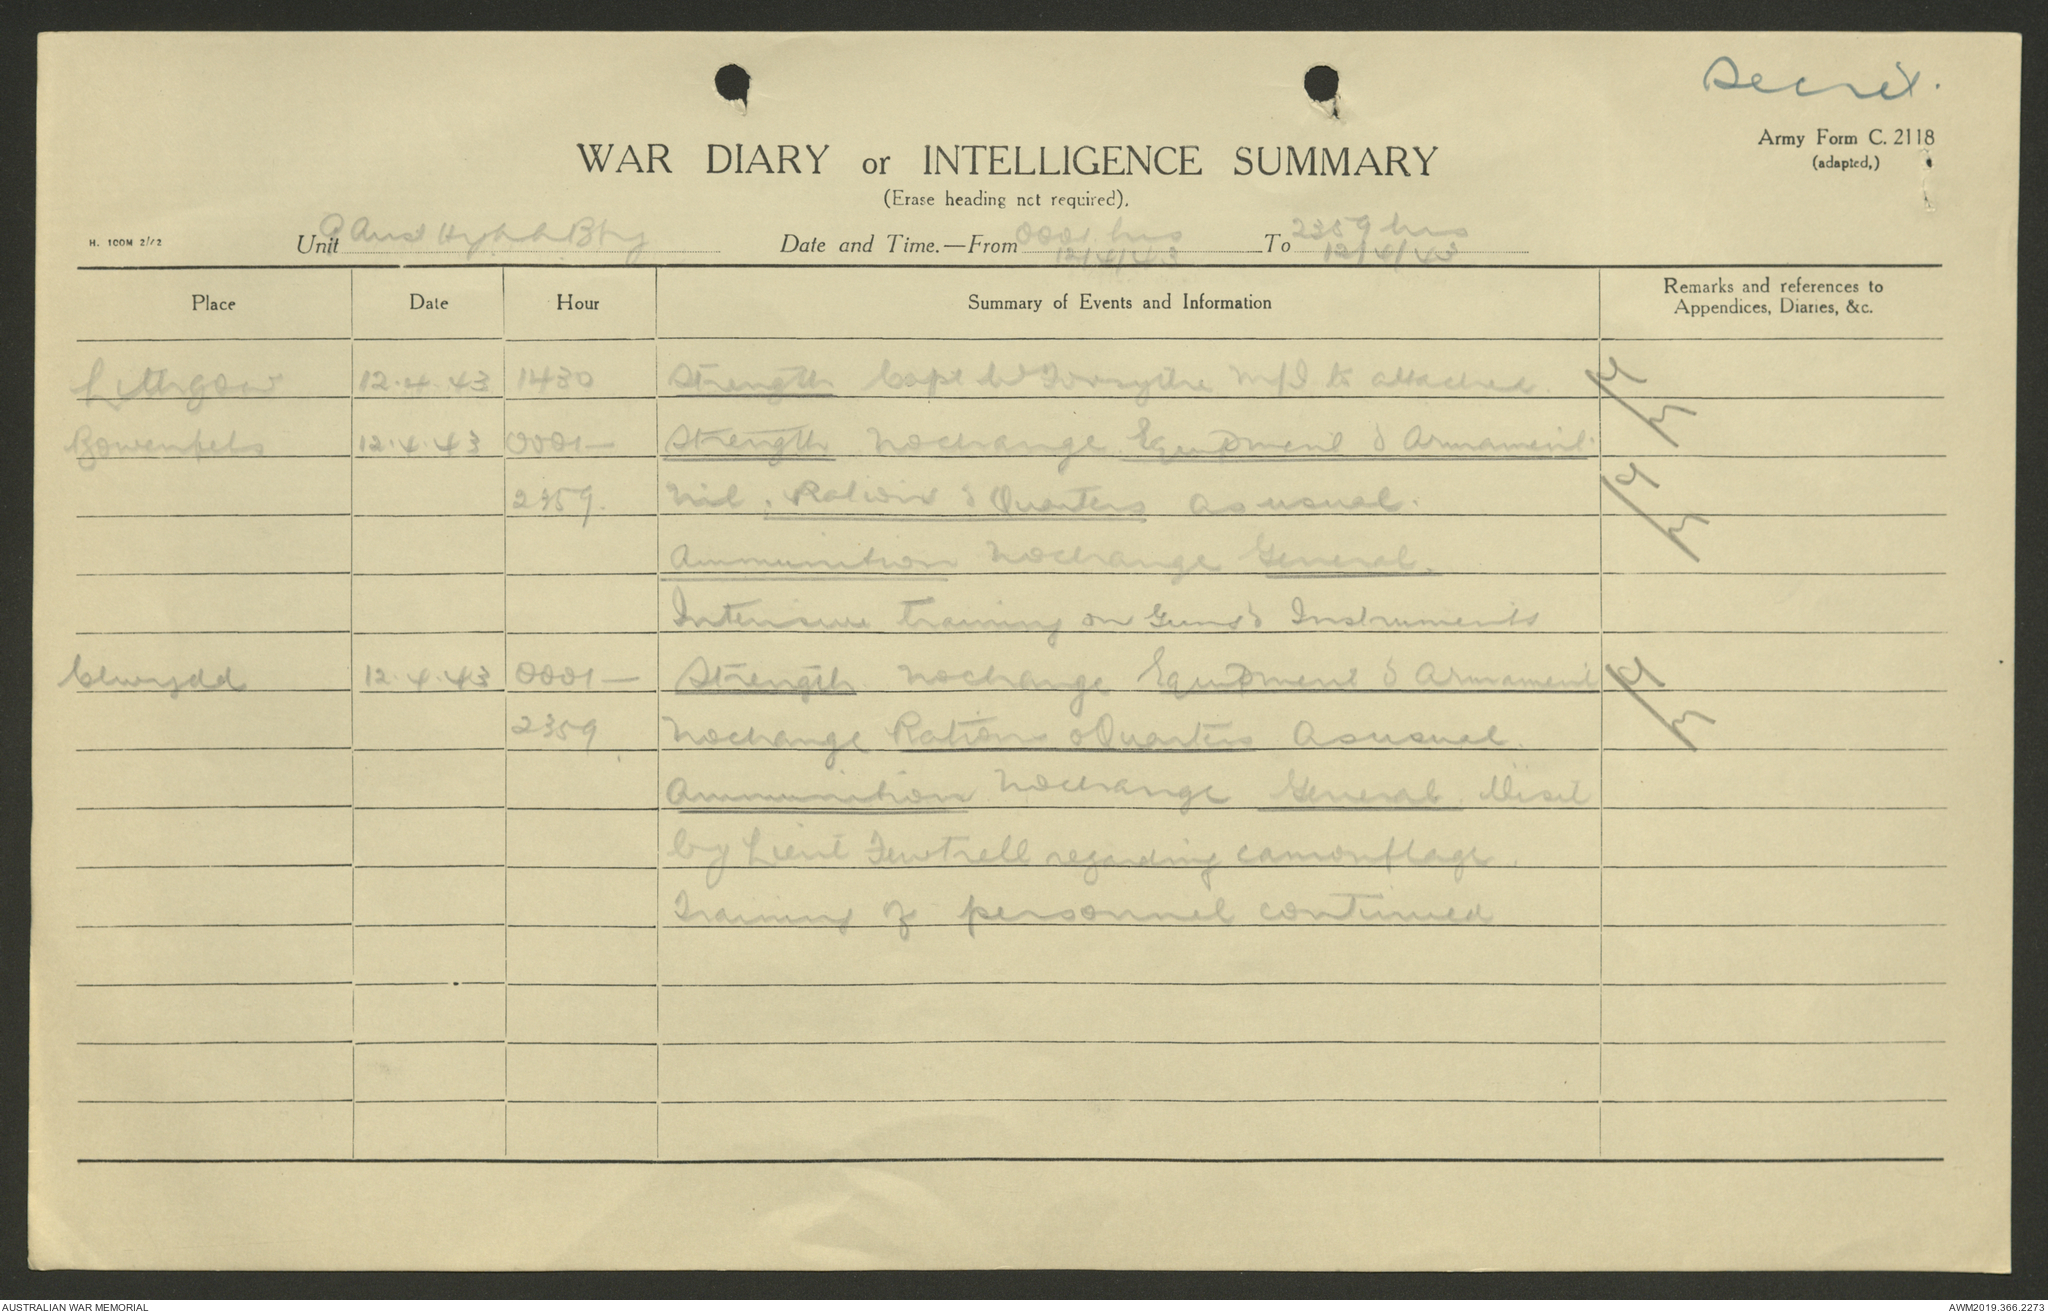 Secret.
Army Form C. 2118
(adapted,)
WAR DIARY or INTELLIGENCE SUMMARY
(Erase heading not required).
H. 100M 2/42
Unit 9 Aust Hy A A Bty Date and Time.—From 0001 hrs 12/4/43 To 2359 hrs 12/4/43
Place Date Hour Summary of Events and Information Remarks and references to Appendices, Diaries, &c.
Lithgow 12.4.43 1430 Strength Capt W Forsythe attached.
Bowenfels 12.4.43 0001— Strength Nochange Equipment & Armament.
2359. Nil. Rations & Quarters as usual.
Ammunition Nochange General.
Intensive training on Guns & Instruments
Clwydd 12.4.43 0001— Strength Nochange Equipment & Armament
2359. Nochange Rations & Quarters as usual.
Ammunition Nochange General. Visit
by Lieut Fewtrell regarding camouflage.
Training of personnel continued
AUSTRALIAN WAR MEMORIAL
AWM2019.366.2273